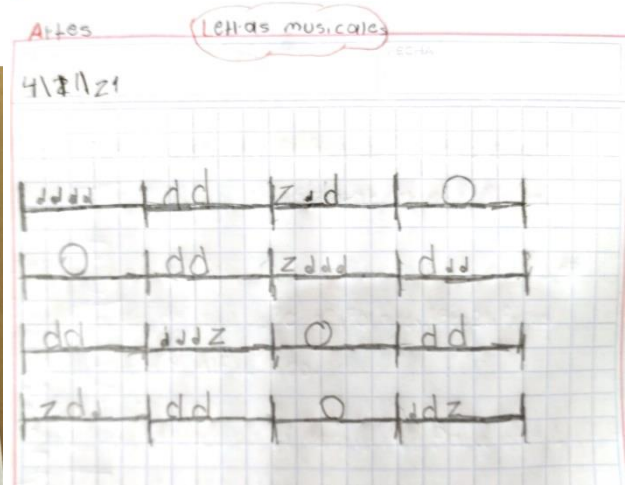 Artes Letras musicales
4\2\\21
dddd dd zdd O
O dd zddd ddd
dd dddz O dd
zdd dd O ddz